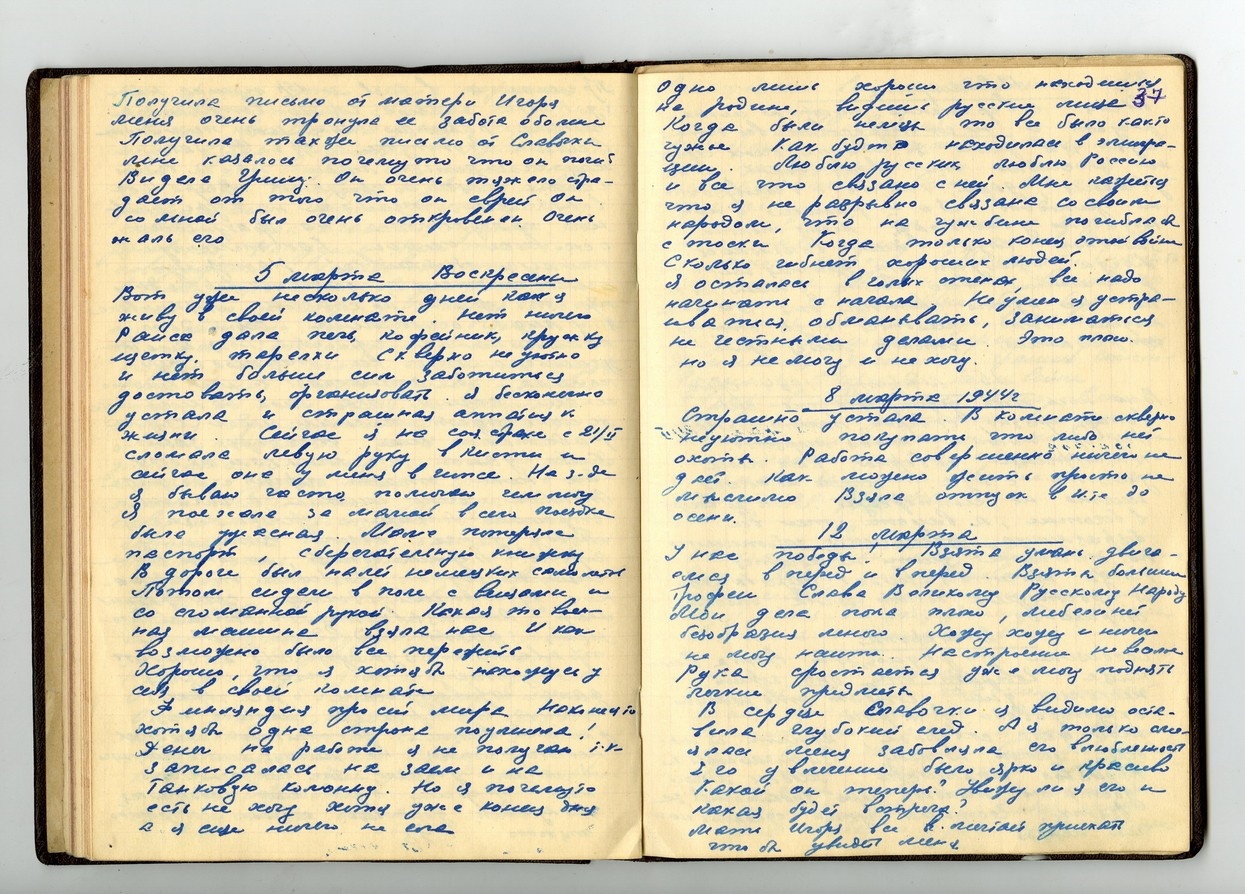 Получила письмо от матери Игоря
меня очень тронула ее забота обо мне
Получила также письмо от Славочки
мне казалось почему то что он погиб
Видела Гришу. Он очень тяжело стра-
дает от того что он еврей Он
со мной был очень откровенен Очень
жаль его
5 марта Воскресение
Вот уже несколько дней как я
живу в своей комнате Нет ничего
Раиса дала печь, кофейник, кружку
щетку, тарелки Скверно не уютно
и нет больше сил заботиться
доставать, организовать. Я бесконечно
устала и страшная аппатия к
жизни. Сейчас я на соц. страхе с 21/II
сломала левую руку в кисти и
сейчас она у меня в гипсе. На з-де
я бываю часто, помогаю чем могу
Я поехала за мамой в село поездка
была ужасная. Мама потеряла
паспорт, сберегательную книжку
В дороге был налет немецких самолетов
Потом сидели в поле с вещами и
со сломанной рукой. Какая то воен-
ная машина взяла нас И как
возможно было все пережить
Хорошо, что я хотябы нахожусь у
себя в своей комнате
Финляндия просит мира Наконец то
хотябы одна страна поумнела!
Денег на работе я не получаю т.к
записалась на заем и на
Танковую колонну. Но я почемуто
есть не хочу хотя уже конец дня
а я еще ничего не ела
Одно лишь хорошо что находишься
на родине, видишь русские лица 37
Когда были немцы то все было както
чужое Как будто находилась в эмигра-
ции. Люблю русских, люблю Россию
и все что связано с ней. Мне кажется
что я не разрывно связана со своим
народом, что на чужбине погибла бы
с тоски Когда только конец этой войне
Сколько гибнет хороших людей.
Я осталась в голых стенах, все надо
начинать с начала. Не умею я устра-
иваться, обманывать, заниматься
не честными делами. Это плохо.
но я не могу и не хочу.
8 марта 1944г
Страшно устала. В комнате скверно
неуютно покупать что либо нет
охоты. Работа совершенно ничего не
дает. Как можно жить просто не
мыслимо Взяла отпуск в ин-те до
осени.
12 марта
У нас победы. Взята Умань. двига-
емся вперед и вперед. Взяты большие
Трофеи Слава Великому Русскому Народу
Мои дела пока плохо, мебели нет
безобразия много Хожу хожу и ничего
не могу найти. Настроение неважное
Рука сростается уже могу поднять
легкие предметы
В сердце Славочки я видимо оста-
вила глубокий след. А я только сме-
ялась меня забавляла его влюбленность
Его увлечение было ярко и красиво
Какой он теперь? Увижу ли я его и
какая будет встреча?
Мать Игоря все мечтает приехать
что бы увидеть меня